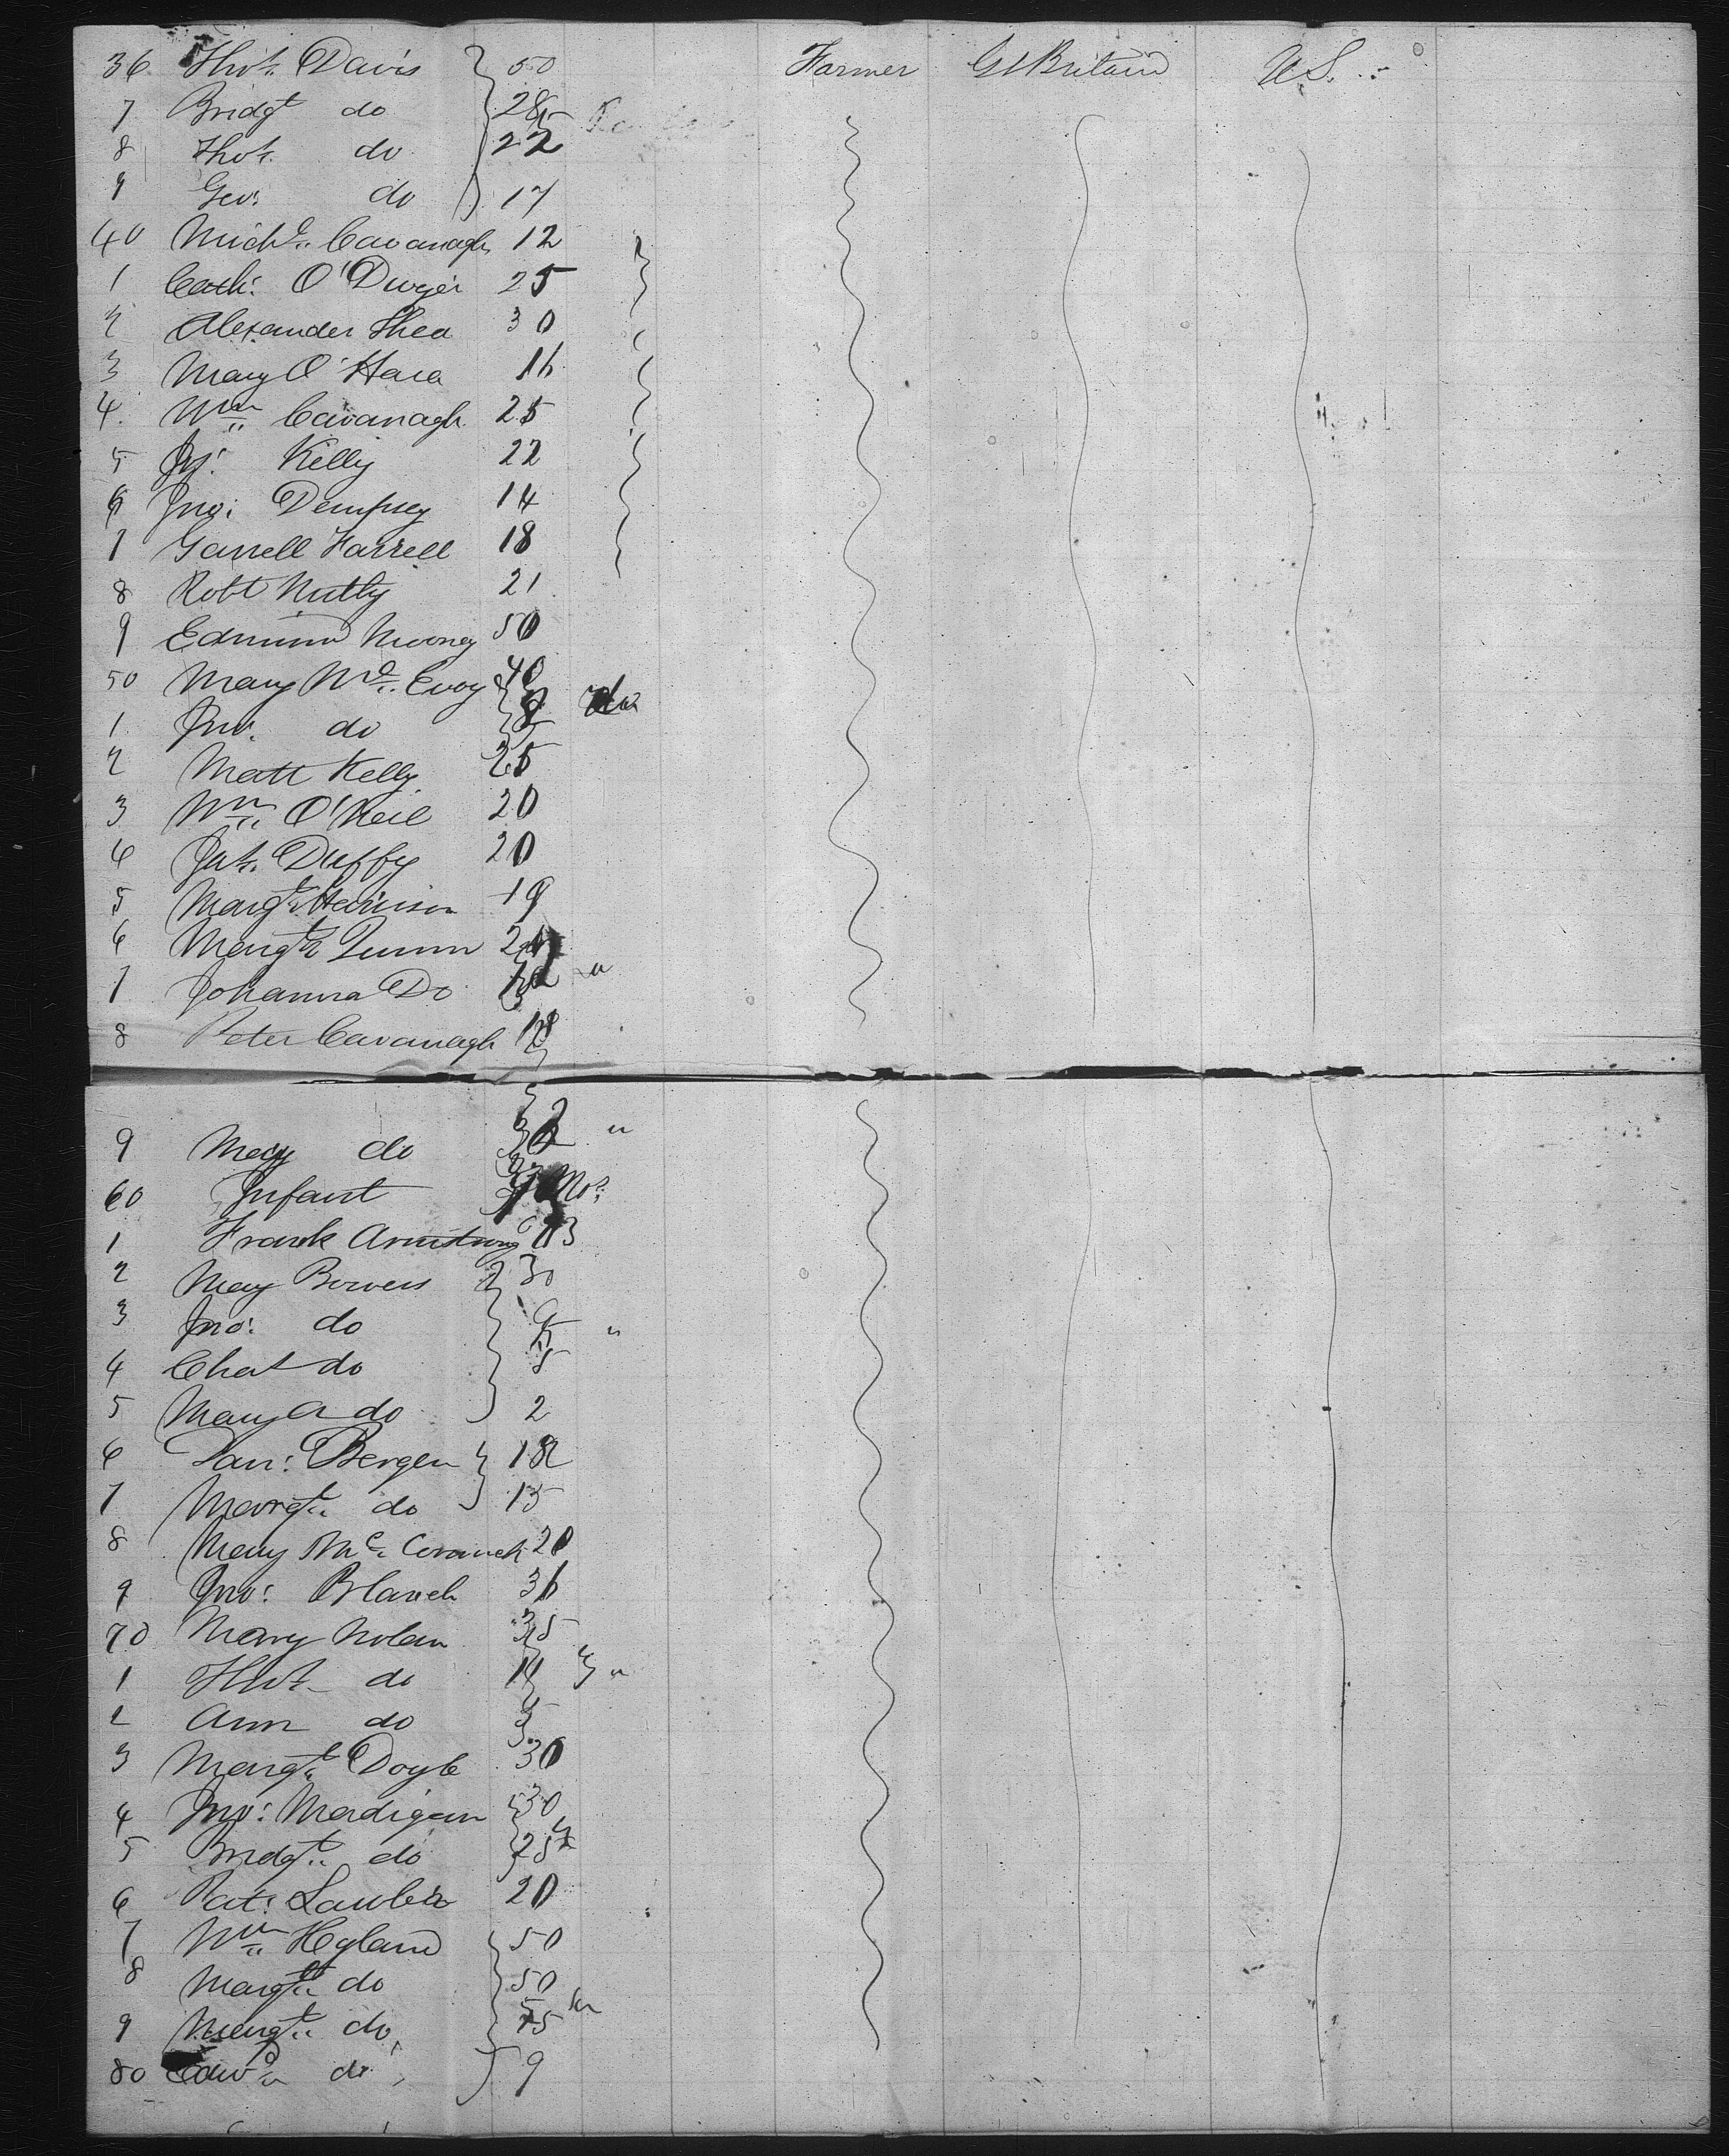 36 Thos. Davis 50 Farmer Gt Britain U.S.
7 Bridgt do 28
8 Thos. do 22
9 Geo: do 17
40 Michl. Cavanagh 12
1 Cath: O'Dwyer 25
2 Alexander Shea 30
3 Mary O'Hara 16
4. Wm Cavanagh 25
5 Kelly 22
6 Jno: Dempsey 14
7 Garrell Farrell 18
8 Robt Nutty 21
9 Edmund Mooney 50
50 Mary Mc. Evoy 40
1. Jno. do
2 Matt Kelly 25
3 Wm O'Neil 20
4 Jas. Duffy 20
5 Margt. Harrison 19
6 Margt. Quinn
7 Johanna Do
8 Peter Cavanagh
9 Mary do
60 Infant Mos:
1 Frank Armstrong 13
2 Mary Bowers 30
3 Jno: do "
4 Chas do
5 Mary A do 2
6 Dan: Bergen 18
7 Margt. do 15
8 Mary Mc. 20
9 Jno: Blanch 36
70 Mary Nolan 35
1 Thos do "
2 Ann do
3 Margt. Doyle 30
4 Jno: Madigan 30
5 Bridgt. do 25
6 Pat: Lawler 20
7 Wm Hyland 50
8 Margt. do 50
9 Margt. do
80 Edwd. do 9